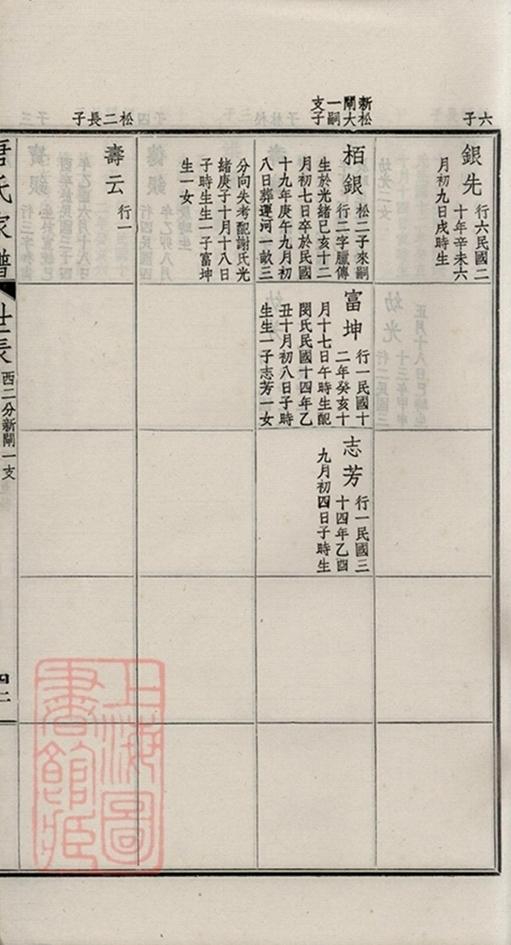 六子
銀先
行六民國二
十年辛未六
月初九日戌時生
新閘一支
松大嗣子
栢銀
松二子來嗣
行二字臚傳
生於光緒己亥十二
月初七日卒於民國
十九年庚午九月初
八日葬運河一畝三
分向失考配謝氏光
緒庚子十月十八日
子時生生一子富坤
生一女
富坤
行一民國十
二年癸亥十
月十七日午時生配
閔氏民國十四年乙
丑十月初八日子時
生生一子志芳一女
志芳
行一民國三
十四年乙酉
九月初四日子時生
松二長子
壽云
行一
氏家譜
世表
西二分新閘一支
上海圖書館藏